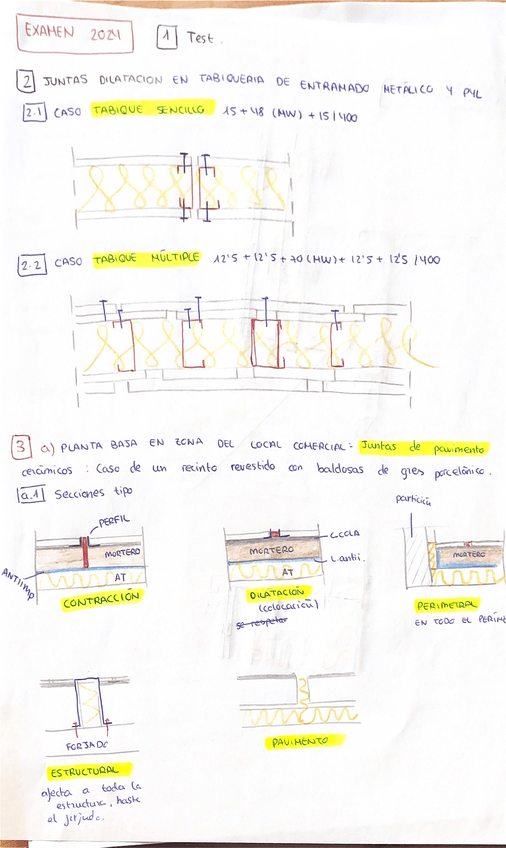 EXAMEN 2024 1 Test.
2 JUNTAS DILATACION EN TABIQUERIA DE ENTRAMADO METÁLICO Y PYL
2.1 CASO TABIQUE SENCILLO 15 + 48 (MW) + 15 / 400
2.2 CASO TABIQUE MÚLTIPLE 12'5 + 12'5 + 70 (MW) + 12'5 + 12'5 / 400
3 a) PLANTA BAJA EN ZONA DEL LOCAL COMERCIAL: Juntas de pavimento
cerámicos : Caso de un recinto revestido con baldosas de gres porcelánico.
a.1 Secciones tipo
PERFIL
MORTERO
ANTIIMP
AT
CONTRACCIÓN
C.COLA
MORTERO
L.antii.
AT
DILATACIÓN
(colocación)
se respetar
partición
MORTERO
PERIMETRAL
EN TODO EL PERÍME
FORJADO
ESTRUCTURAL
afecta a toda la
estructura, hasta
el forjado.
PAVIMENTO